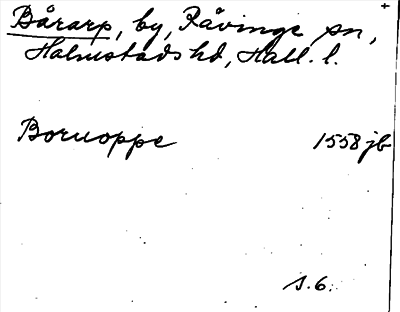 Bårarp, by, Råvinge sn,
Halmstads hd, Hall. l.
Boruoppe 1558 jb
s. 6.